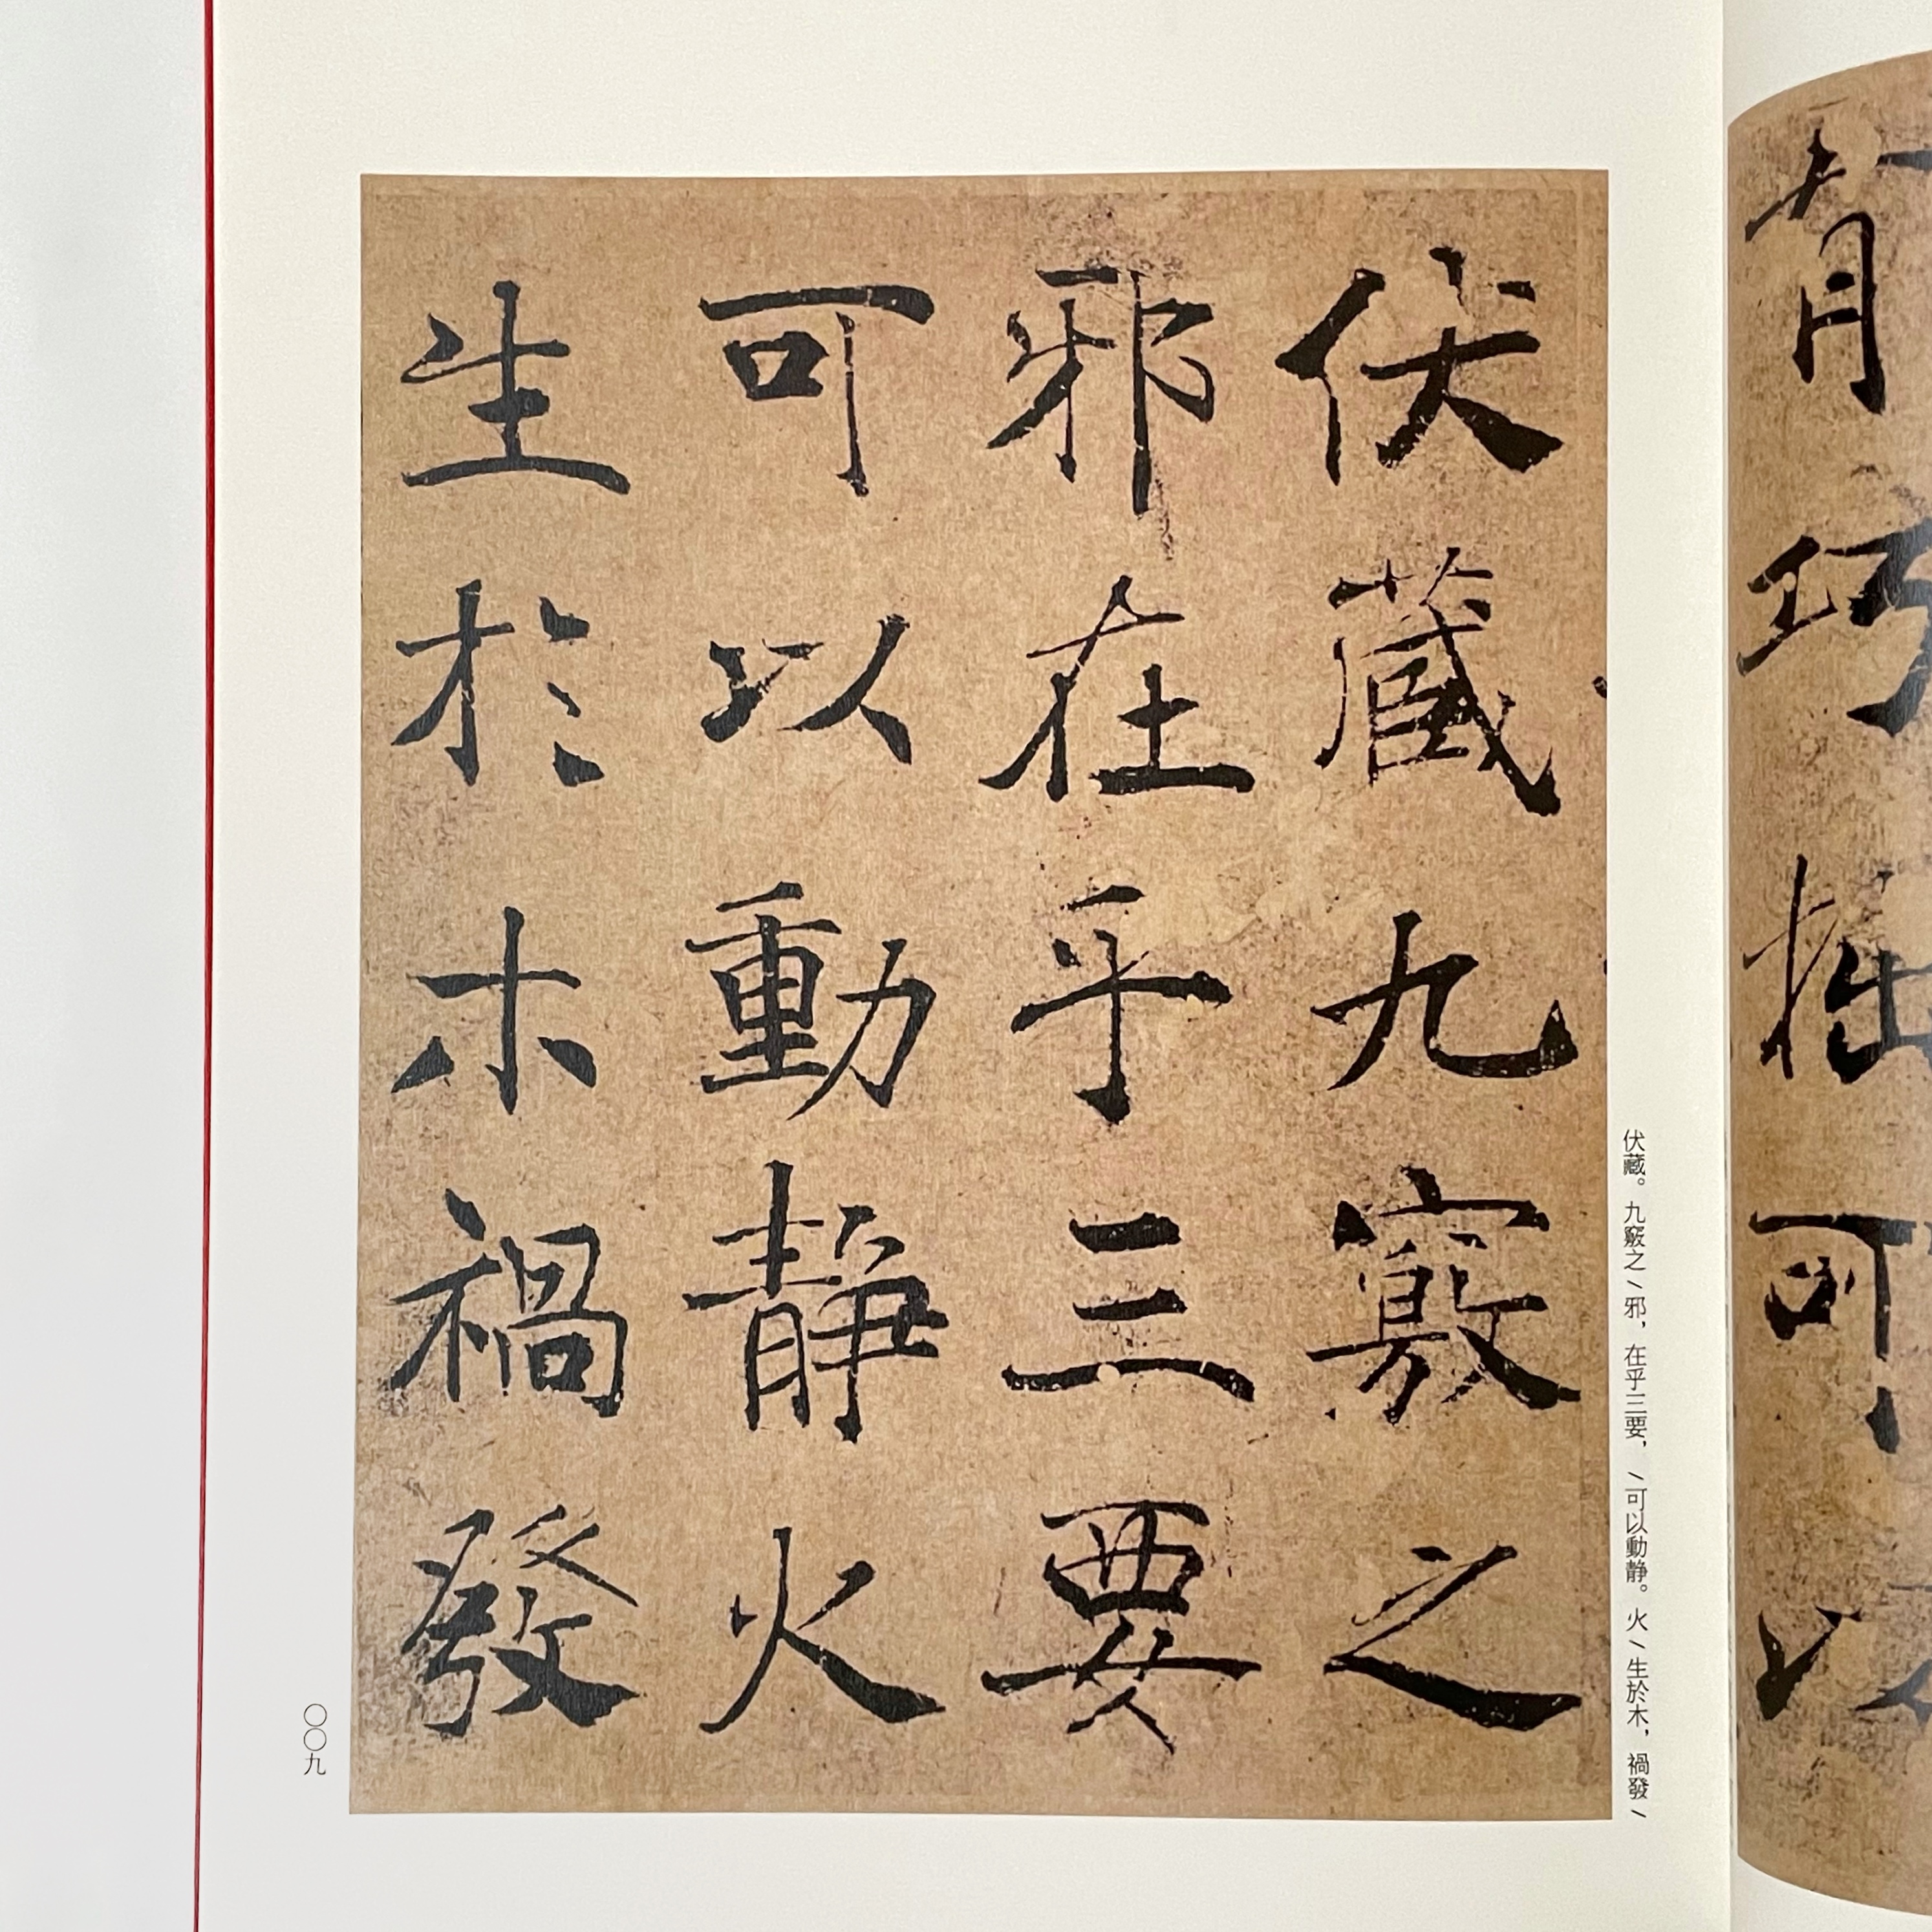 有巧拙可以
伏藏九竅之
邪在乎三要
可以動静火
生於木禍發
伏藏。九竅之/邪，在乎三要，/可以動静。火/生於木，禍發/
〇〇九